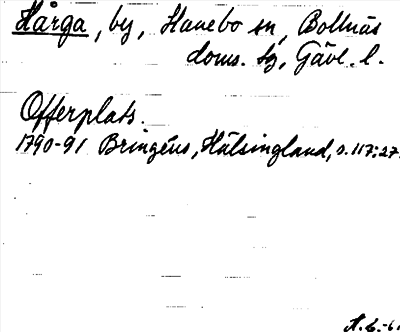 Hårga, by, Hanebo sn, Bollnäs
doms. tg, Gävl. l.
Offerplats.
1790-91 Bringéus, Hälsingland, s. 117:27.